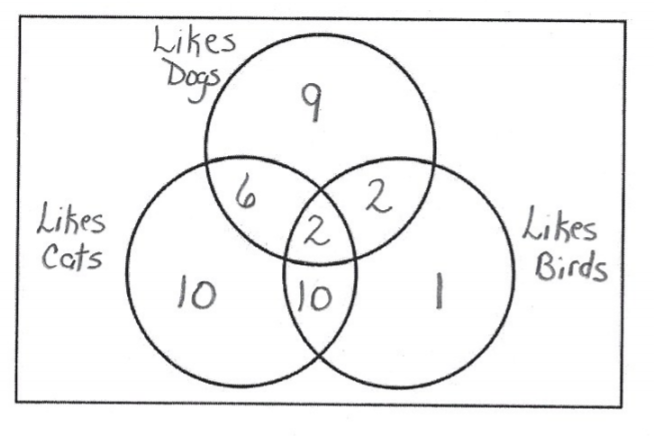 Likes
Dogs
9
6
2
2
Likes
Cats
Likes
Birds
10
10
1